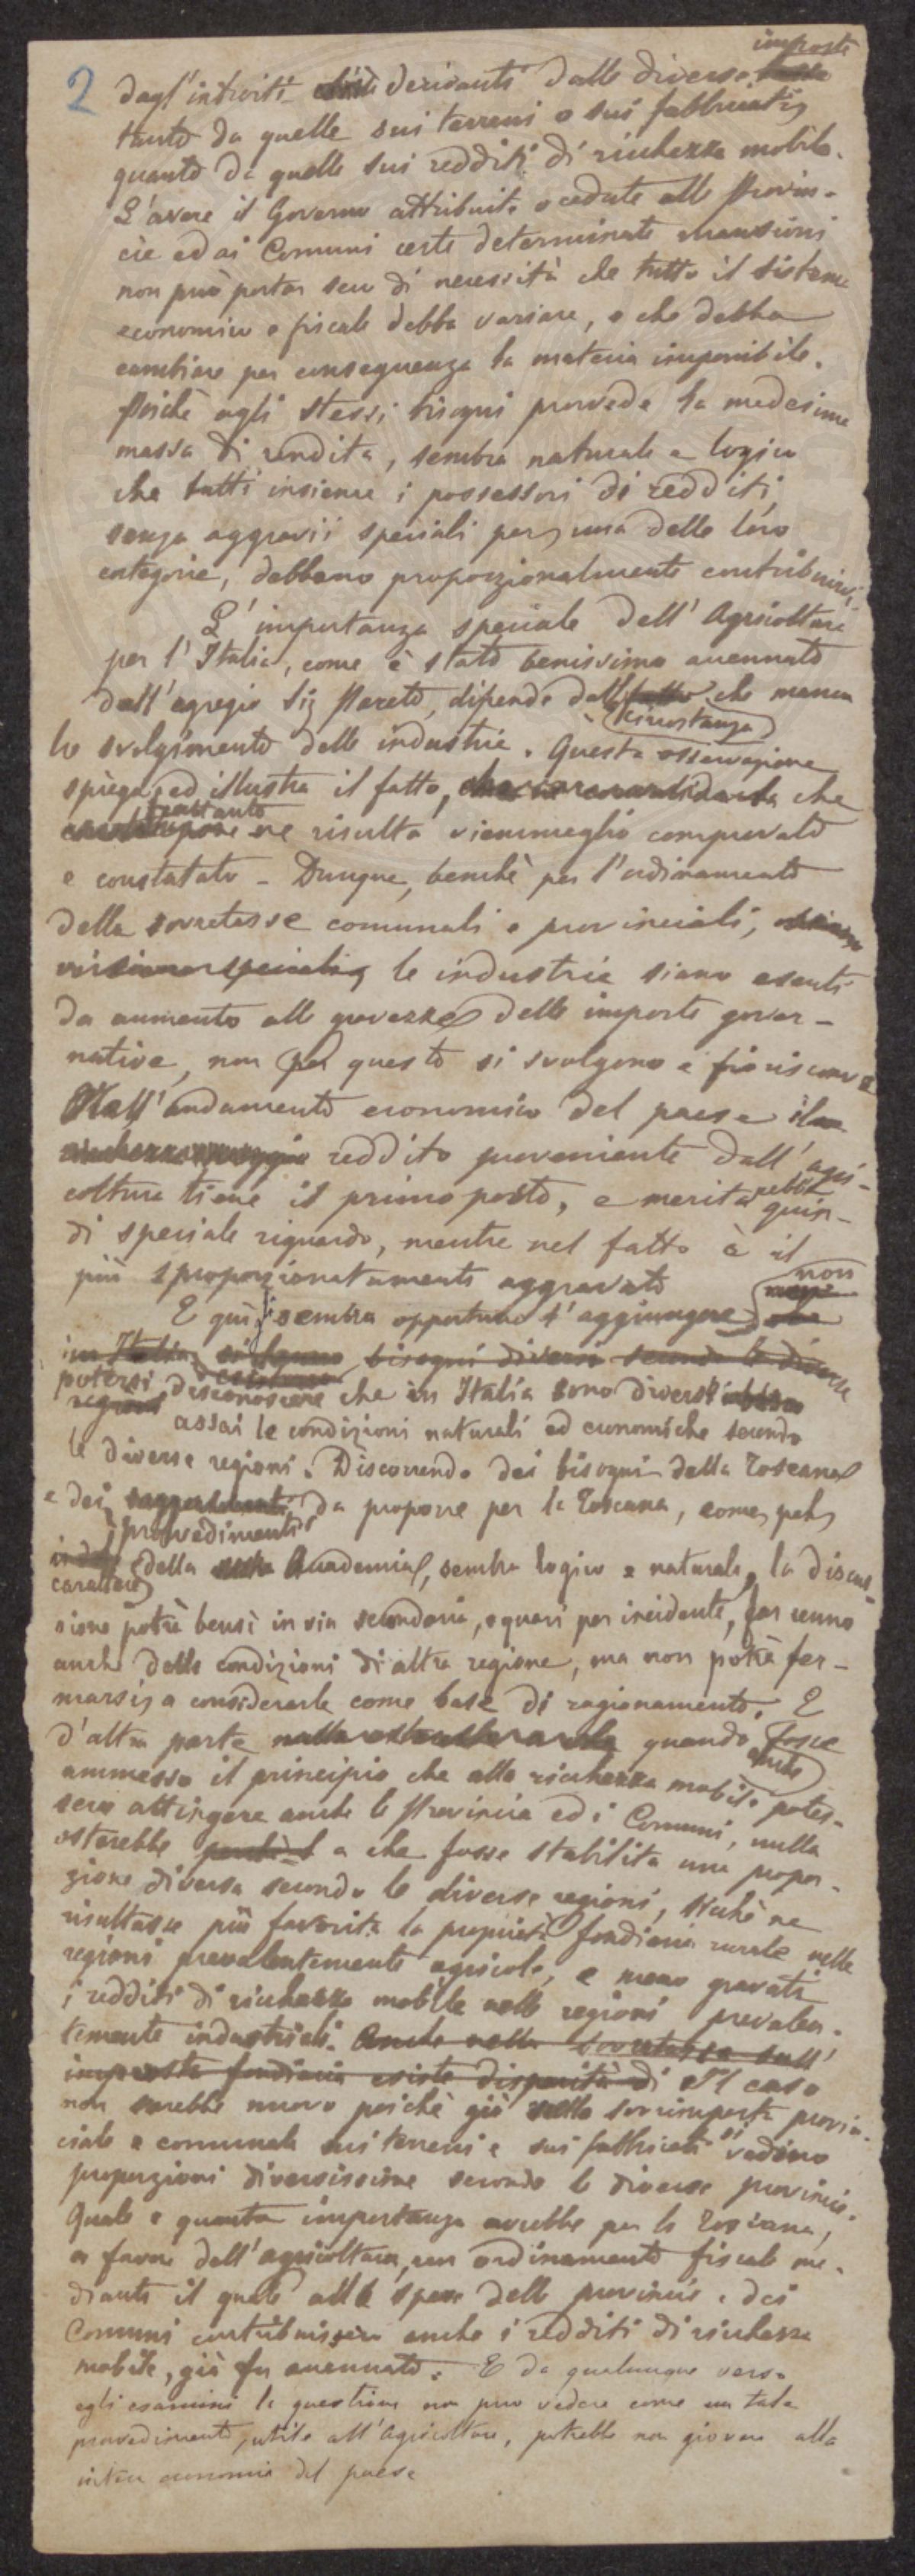 imposte
2 dagl'introiti derivanti dalle diverse tasse
tanto da quelle sui terreni e sui fabbricati,
quanto da quelle sui redditi di ricchezza mobile.
L'avere il Governo attribuite o cedute alle Provin-
cie ed ai Comuni certe determinate mansioni
non può portar seco di necessità che tutto il sistema
economico e fiscale debba variare, e che debba
cambiare per conseguenza la materia imponibile.
Poichè agli stessi bisogni provvede la medesima
massa di rendita, sembra naturale e logico
che tutti insieme i possessori di redditi,
senza aggravii speciali per una delle loro
categorie, debbano proporzionalmente contribuirvi.
L'importanza speciale dell'Agricoltura
per l'Italia, come è stato benissimo accennato
dall'egregio Sig Pareto, dipende dal fatto che manca
circostanza
lo svolgimento delle industrie. Questa osservazione
spiega ed illustra il fatto, che
pertanto
ne risulta viemmeglio comprovato
e constatato - Dunque, benchè per l'ordinamento
delle sovratasse comunali e provinciali,
speciali, le industrie siano esenti
da aumento alle gravezze delle imposte gover-
native, non per questo si svolgono e fioriscono
Nell'andamento economico del paese il
ricchezza maggiore reddito proveniente dall'agri-
coltura tiene il primo posto, e merita quin-
di speciale riguardo, mentre nel fatto è il
più sproporzionatamente aggravato
non
E quì sembra opportuno d'aggiungere che
in Italia bisogni diversi secondo le diverse
potersi disconoscere che in Italia sono diversi
regioni assai le condizioni naturali ed economiche secondo
le diverse regioni. Discorrendo dei bisogni della Toscana
e dei suggerimenti da proporre per la Toscana, come, pel
provvedimenti
carattere della Accademia, sembra logico e naturale, la discus-
sione potrà bensì in via secondaria, e quasi per incidente, far cenno
anche delle condizioni di altra regione, ma non potrà fer-
marsi a considerarle come base di ragionamento. E
d'altra parte quando fosse
anche
ammesso il principio che alla ricchezza mobile potes-
sero attingere anche le Provincie ed i Comuni, nulla
osterebbe perchè a che fosse stabilita una propor-
zione diversa secondo le diverse regioni, sicchè ne
risultasse più favorita la proprietà fondiaria rurale nelle
regioni prevalentemente agricole, e meno gravati
i redditi di ricchezza mobile nelle regioni prevalen-
temente industriali. Anche nella sovratassa sull'
imposta fondiaria esiste disparità di Il caso
non sarebbe nuovo poichè già nella sovrimposta provin-
ciale e comunale sui terreni e sui fabbricati si vedono
proporzioni diversissime secondo le diverse provincie.
Quale e quanta importanza avrebbe per la Toscana,
a favore dell'agricoltura, un ordinamento fiscale me-
diante il quale alle spese delle provincie e dei
Comuni contribuissero anche i redditi di ricchezza
mobile, già fu accennato. E da qualunque verso
egli esamini la questione non può vedere come un tale
provvedimento, utile all'Agricoltura, potrebbe non giovare alla
intera economia del paese